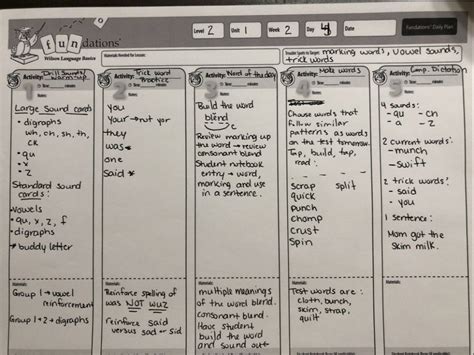 Level 2 Unit 1 Week 2 Day 4
Fundations® Daily Plan
fundations®
Wilson Language Basics
Materials Needed for Lesson:
Trouble Spots to Target: marking words, vowel sounds,
trick words
1
Activity: Drill Sounds/
warm-up
Large Sound cards
• digraphs
wh, ch, sh, th,
ck
• qu
• x
• z
Standard sound
cards:
• vowels
• qu, x, z, f
• digraphs
→ buddy letter
Group 1 → vowel
reinforcement
Group 1+2 → digraphs
2
Activity: Trick word
Practice
Notes:
you
Your → nut yor
they
was
one
Said
Materials:
Reinforce spelling of
was NOT wuz
reinforce said
versus sad or sid
3
Activity: Word of the day
Notes:
Build the word
blend
Review marking up
the word → review
consonant blend
Student notebook
entry → word,
marking and use
in a sentence.
Materials:
multiple meanings
of the word blend.
consonant blend.
Have student
build the word
and sound out
4
Activity: Make words
Notes:
Choose words that
follow similar
patterns as words
on the test tomorrow.
Tap, build, tap,
read:
scrap split
quick
punch
chomp
crust
spin
Materials:
Test words are:
cloth, bunch,
skim, strap,
quilt
5
Activity: Comp. Dictation
Notes:
4 sounds:
- qu - ch
- a - z
2 current words:
- munch
- swift
2 trick words:
- said
- you
1 sentence:
Mom got the
skim milk.
Materials: